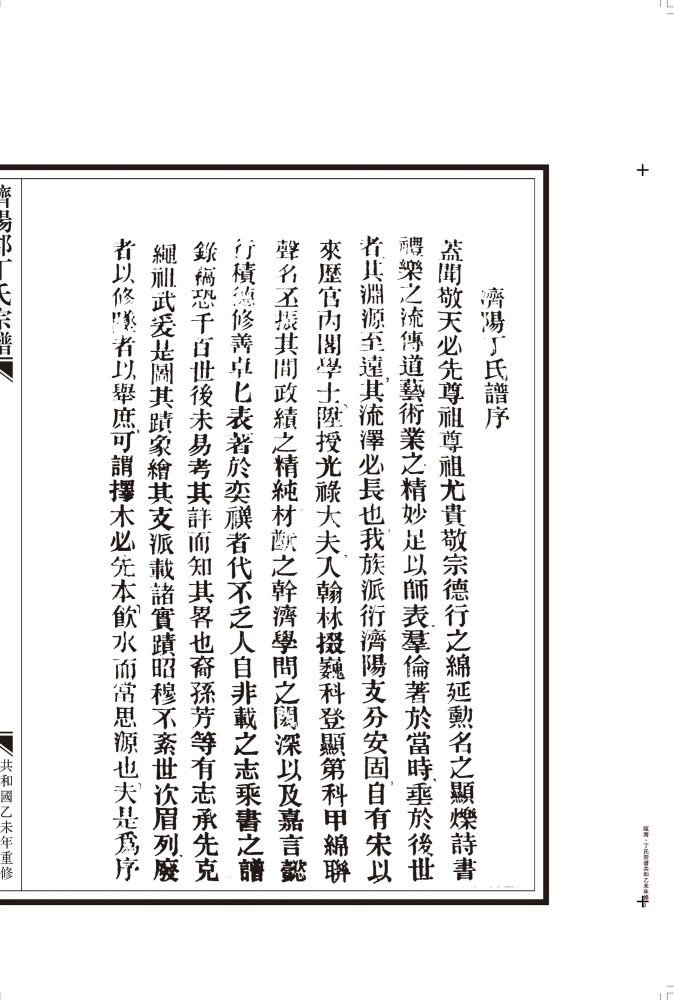 濟陽丁氏譜序
蓋聞敬天必先尊祖尊祖尤貴敬宗德行之綿延勳名之顯爍詩書
禮樂之流傳道藝術業之精妙足以師表羣倫著於當時垂於後世
者其淵源至遠其流澤必長也我族派衍濟陽支分安固自有宋以
來歷官內閣學士陞授光祿大夫入翰林掇巍科登顯第科甲綿聯
聲名丕振其間政績之精純材猷之幹濟學問之閎深以及嘉言懿
行積德修善卓匕表著於奕禩者代不乏人自非載之志乘書之譜
錄稿恐千百世後未易考其詳而知其畧也裔孫芳等有志承先克
繩祖武爰是圖其蹟象繪其支派載諸實蹟昭穆不紊世次眉列廢
者以修墜者以舉庶可謂擇木必先本飲水而常思源也夫是爲序
濟陽郡丁氏宗譜
共和國乙未年重修